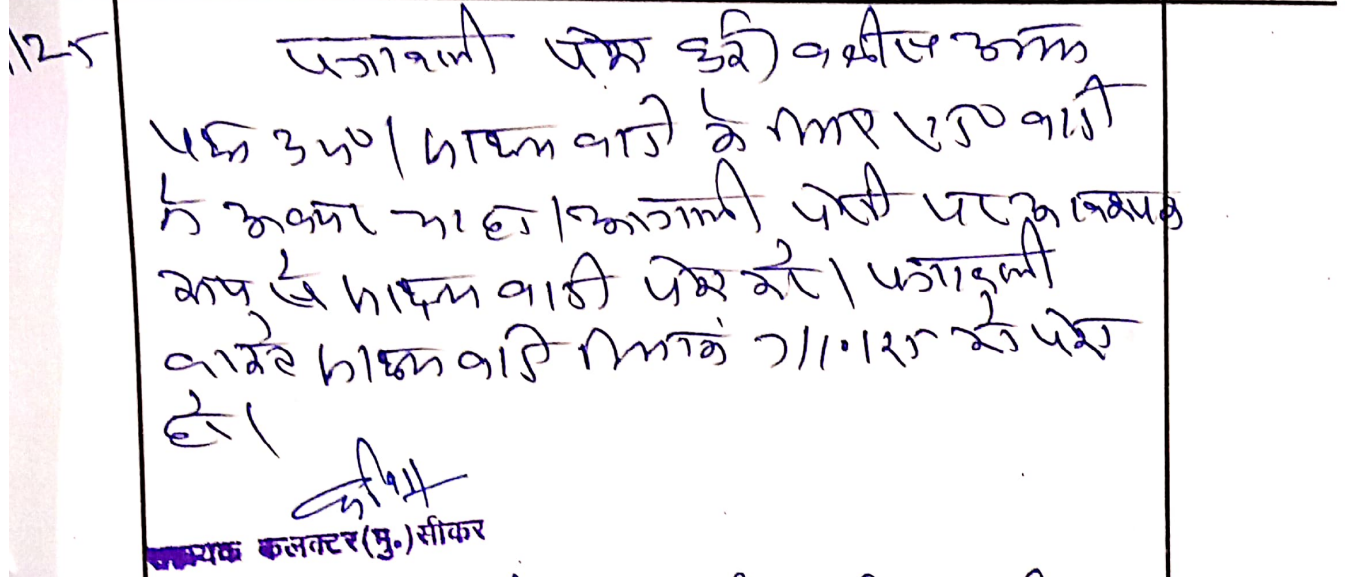 /25
पत्रावली पेश हुई। वकील उभय
पक्ष उप0। साक्ष्य वादी के लिए एडv वादी
ने अवसर चाहा। आगामी पेशी पर आवश्यक
रूप से साक्ष्य वादी पेश करे। पत्रावली
वास्ते साक्ष्य वादी दिनांक 7/10/25 को पेश
हो।
सहायक कलक्टर(मु.)सीकर